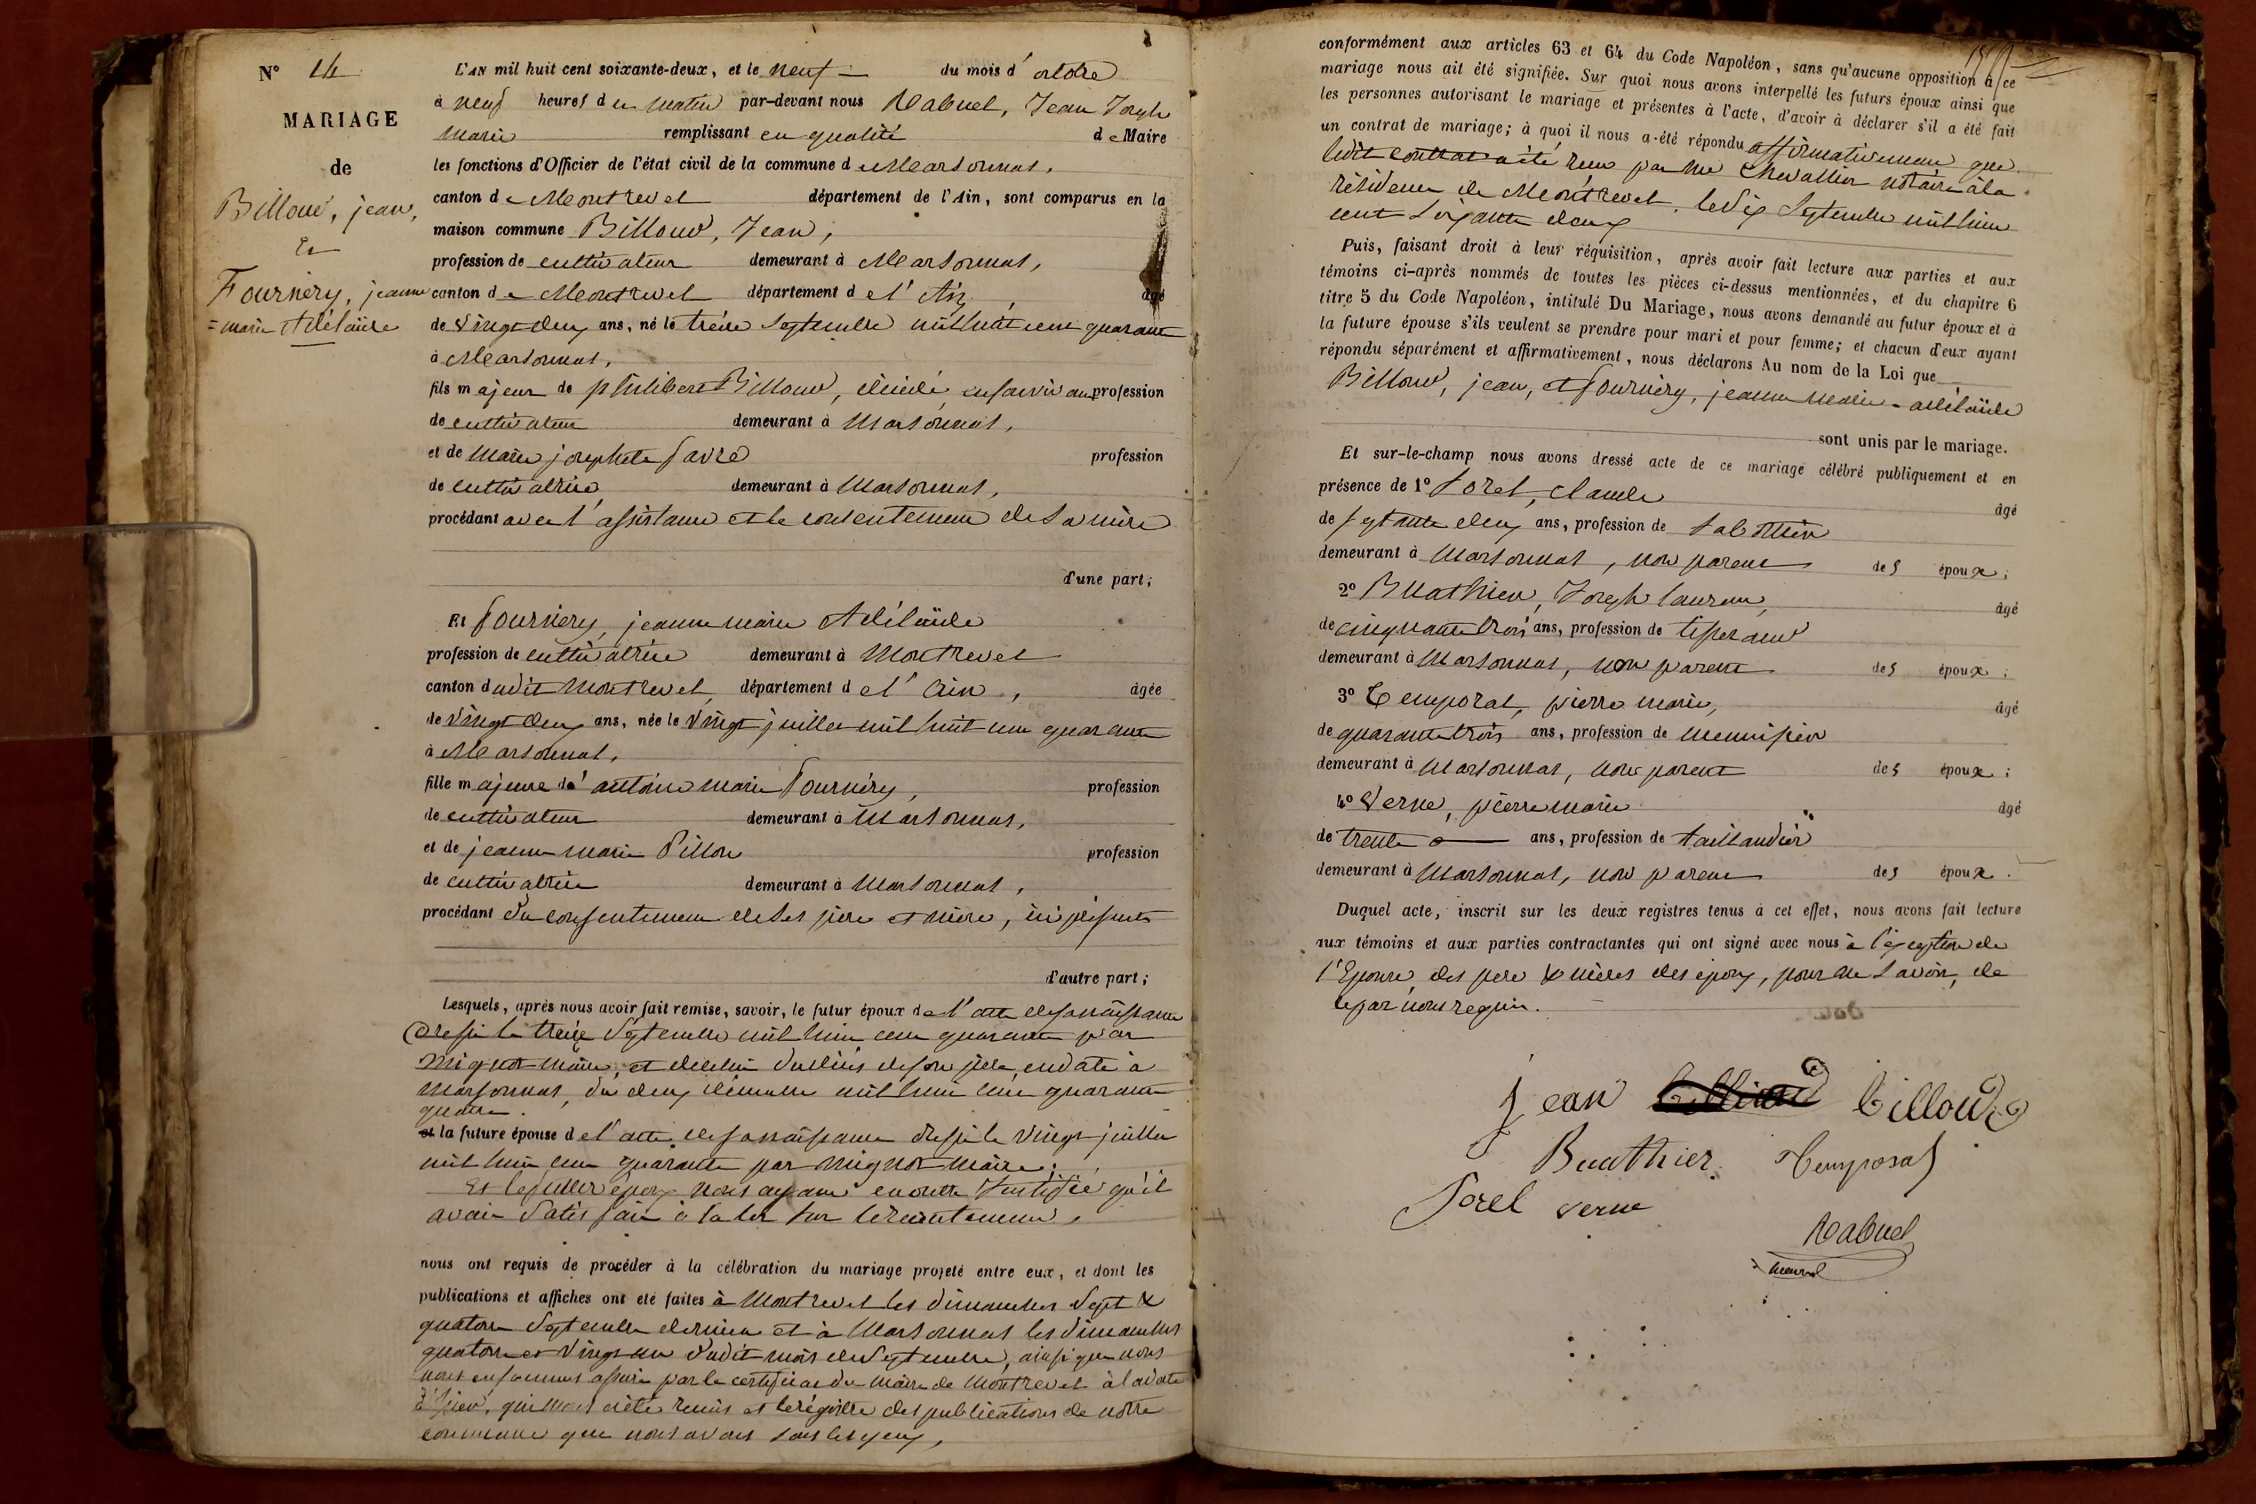 N° 14
MARIAGE
de
Billoud, jean,
Et
Fournery, jeanne
=marie Adélaïde
L'AN mil huit cent soixante-deux, et le neuf du mois d'octobre
à neuf heures du matin par-devant nous Rabuel, Jean Joseph
Marie remplissant en qualité de Maire
les fonctions d'Officier de l'état civil de la commune de Marsonnas,
canton de Montrevel département de l'Ain, sont comparus en la
maison commune Billoud, Jean,
profession de cultivateur demeurant à Marsonnas,
canton de Montrevel département de l'Ain, âgé
de vingt deux ans, né le treize Septembre mil huit cent quarante
à Marsonnas,
fils majeur de philibert Billoud, décédé, en son vivant profession
de cultivateur demeurant à Marsonnas,
et de Marie josephete favre profession
de cultivatrice demeurant à Marsonnas,
procédant avec l'assistance et le consentement de Sa mère
d'une part;
Et fournery, jeanne marie Adélaïde
profession de cultivatrice demeurant à Montrevel
canton dudit Montrevel, département de l'Ain, âgée
de vingt deux ans, née le vingt juillet mil huit cent quarante
à Marsonnas,
fille majeure d'antoine marie fournery, profession
de cultivateur demeurant à Marsonnas,
et de jeanne marie Pillon profession
de cultivatrice demeurant à Marsonnas,
procédant du consentement de Ses père et mère, ici présents
d'autre part;
Lesquels, après nous avoir fait remise, savoir, le futur époux de l'acte de naissance
dressé le treize Septembre mil huit cent quarante par
Mignot maire, et de celui du décès de son père, en date à
Marsonnas, du deux décembre mil huit cent quarante
quatre.
et la future épouse de l'acte de naissance dressé le vingt juillet
mil huit cent quarante par Mignot maire;
Et le futur époux nous ayant en outre justifié qu'il
avait Satisfait à la loi Sur le recrutement,
nous ont requis de procéder à la célébration du mariage projeté entre eux, et dont les
publications et affiches ont été faites à Montrevel les dimanches Sept &
quatorze Septembre dernier et à Marsonnas les dimanches
quatorze et vingt un dudit mois de Septembre, ainsi que nous
nous en sommes assuré par le certificat du Maire de Montrevel à la date
d'hier, qui nous a été remis et le régistre des publications de notre
commune que nous avons sous les yeux,
conformément aux articles 63 et 64 du Code Napoléon, sans qu'aucune opposition à ce
mariage nous ait été signifiée. Sur quoi nous avons interpellé les futurs époux ainsi que
les personnes autorisant le mariage et présentes à l'acte, d'avoir à déclarer s'il a été fait
un contrat de mariage; à quoi il nous a été répondu affirmativement que
ledit contrat a été reçu par Me Chevallier notaire à la
résidence de Montrevel, le dix Septembre mil huit
cent Soixante deux
Puis, faisant droit à leur réquisition, après avoir fait lecture aux parties et aux
témoins ci-après nommés de toutes les pièces ci-dessus mentionnées, et du chapitre 6
titre 5 du Code Napoléon, intitulé Du Mariage, nous avons demandé au futur époux et à
la future épouse s'ils veulent se prendre pour mari et pour femme; et chacun d'eux ayant
répondu séparément et affirmativement, nous déclarons Au nom de la Loi que
Billoud, jean, et fournery, jeanne marie-adélaïde
sont unis par le mariage.
Et sur-le-champ nous avons dressé acte de ce mariage célébré publiquement et en
présence de 1° Sorel, Claude âgé
de Septante deux ans, profession de Sabottier
demeurant à Marsonnas, non parent des époux;
2° Buathier, Joseph laurent, âgé
de cinquante trois ans, profession de tisserand
demeurant à Marsonnas, non parent des époux;
3° Temporal, pierre marie, âgé
de quarante trois ans, profession de menuisier
demeurant à Marsonnas, non parent des époux;
4° Verne, pierre marie âgé
de trente ans, profession de taillandier
demeurant à Marsonnas, non parent des époux.
Duquel acte, inscrit sur les deux registres tenus à cet effet, nous avons fait lecture
aux témoins et aux parties contractantes qui ont signé avec nous à l'exception de
l'Epouse, des père & mères des époux, pour ne Savoir, de
ce par nous requis.
jean billoud
Buathier Temporal
Sorel verne
Rabuel